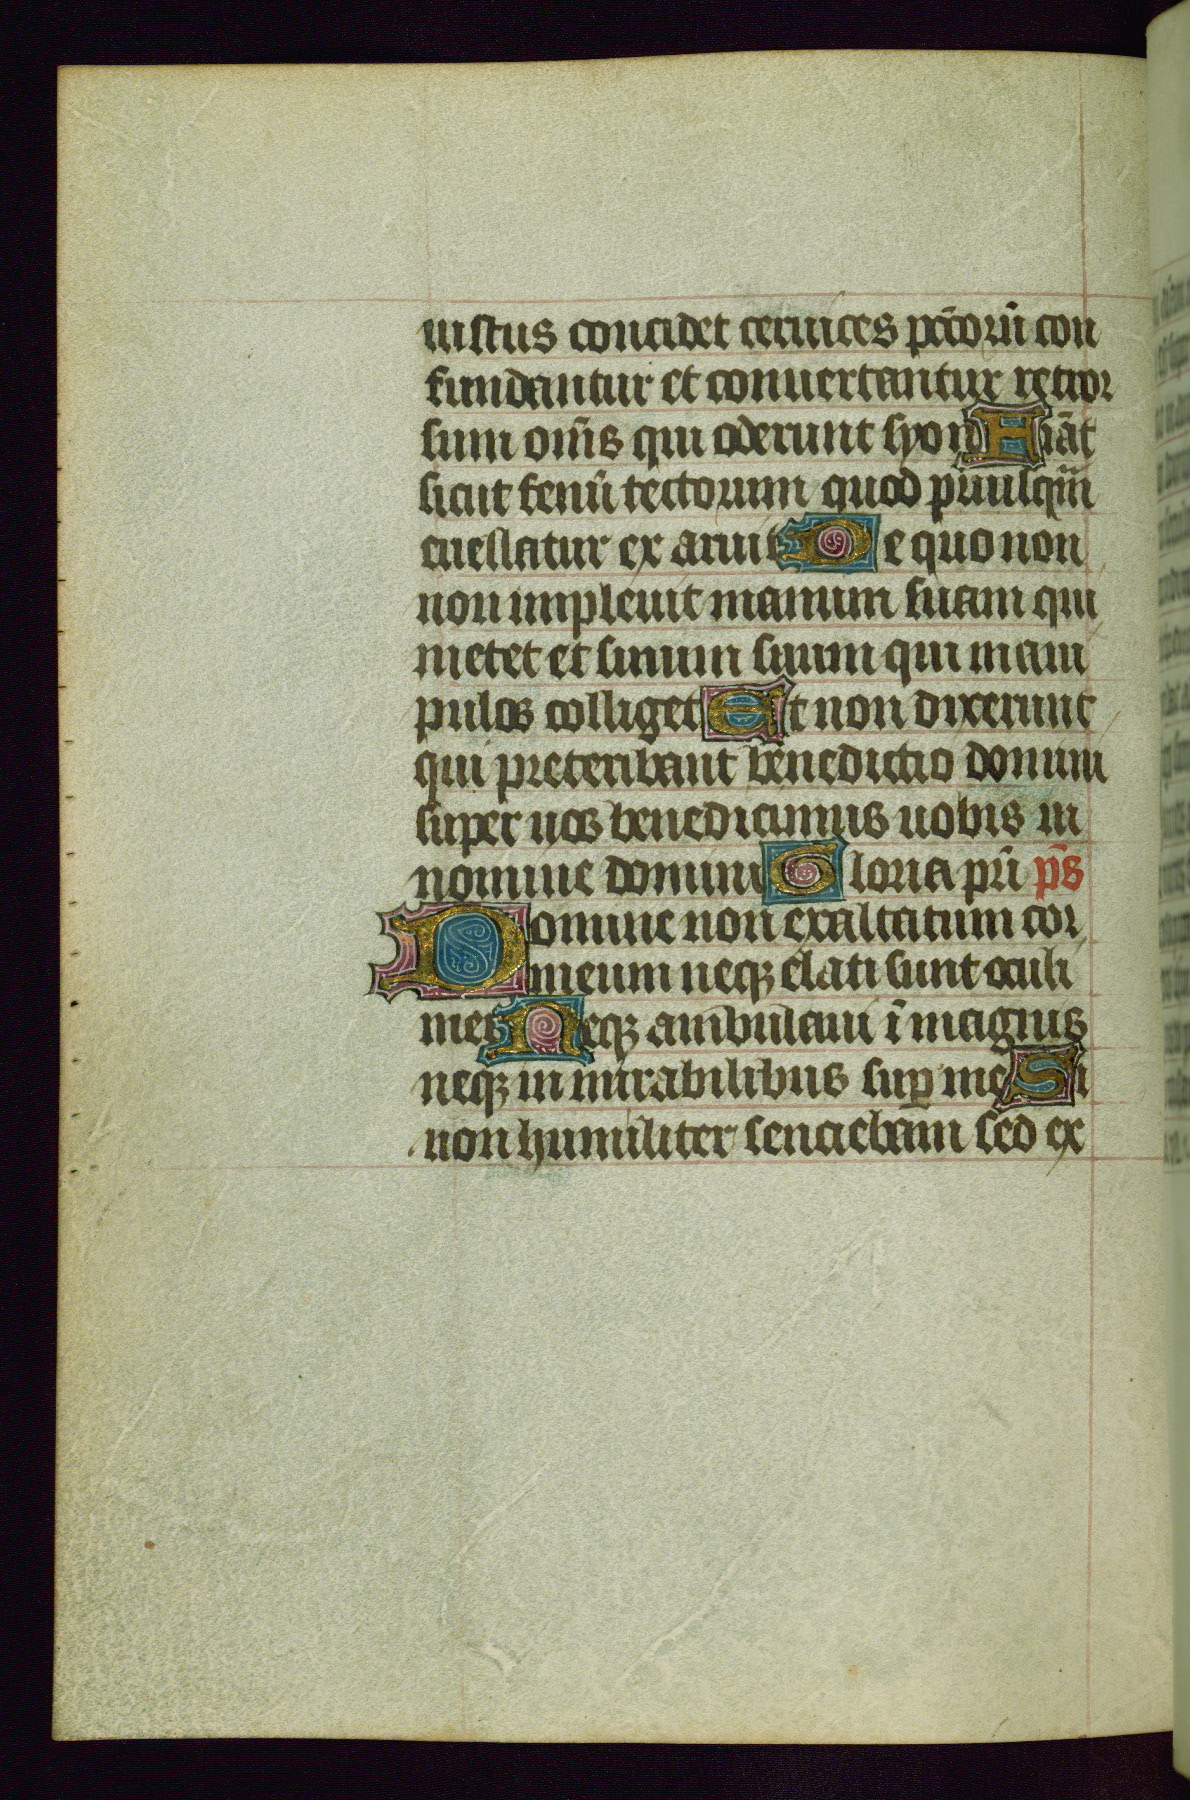 iustus concidet ceruices pctorū con
fundantur et conuertantur retror
sum om̄s qui oderunt syon Fiāt
sicut fenū tectorum quod priusq̄m
euellatur ex aruit De quo non
non impleuit manum suam qui
metet et sinum suum qui mani
pulos colliget Et non dixerunt
qui preteribant benedictio domini
super uos benedicimus uobis in
nomine domini Gloria pr̄i p̄s
Domine non exaltatum cor
meum neqz elati sunt oculi
mei Neqz ambulaui ī magnis
neqz in mirabilibus suꝑ me Si
non humiliter senciebam sed ex